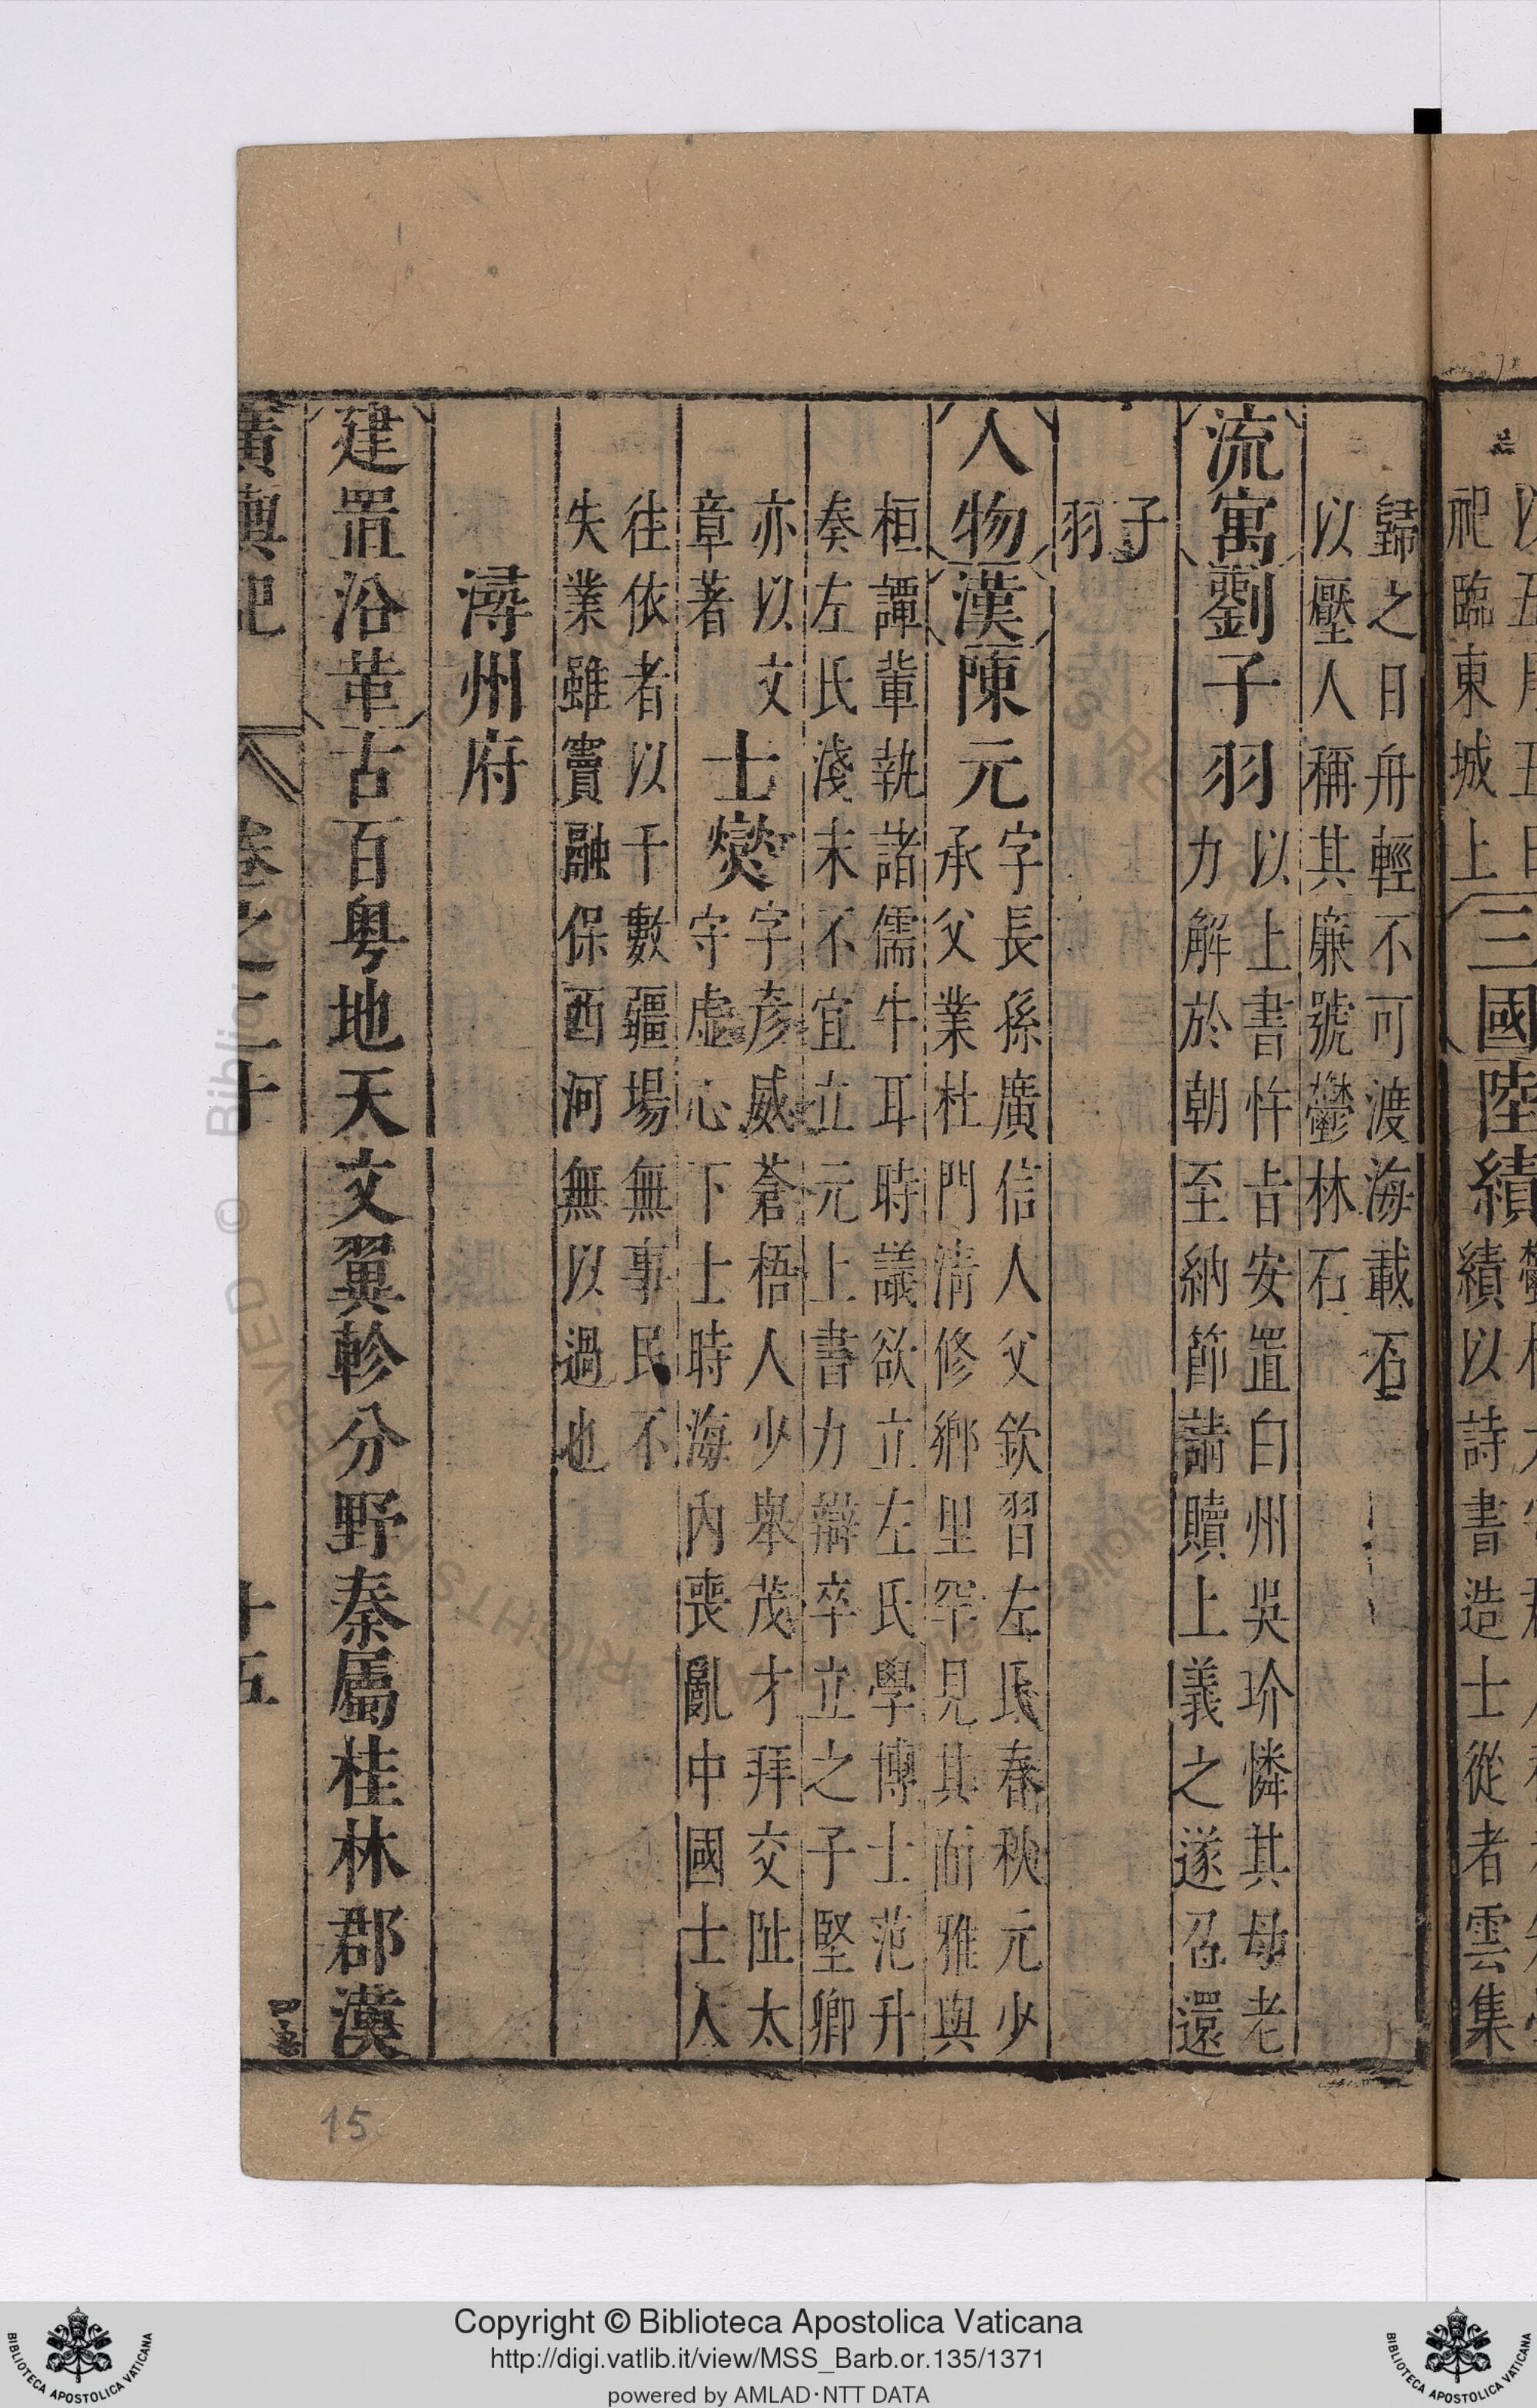 祀臨東城上
三國陸績
績以詩書造士從者雲集
歸之日舟輕不可渡海載石
以壓人稱其廉號鬱林石
流寓劉子羽
以上書忤旨安置白州吳玠憐其母老
力解於朝至納節請贖上義之遂召還
子
羽
人物漢陳元
字長孫廣信人父欽習左氏春秋元少
承父業杜門清修鄉里罕見其面雅與
桓譚輩執諸儒牛耳時議欲立左氏學博士范升
奏左氏淺末不宜立元上書力辯卒立之子堅卿
亦以文
章著
士燮
字彥威蒼梧人少舉茂才拜交阯太
守虛心下士時海內喪亂中國士人
往依者以千數疆場無事民不
失業雖竇融保西河無以過也
潯州府
建置沿革古百粵地天文翼軫分野秦屬桂林郡漢
廣輿記
卷之二十
十五
15
Copyright © Biblioteca Apostolica Vaticana
http://digi.vatlib.it/view/MSS_Barb.or.135/1371
powered by AMLAD·NTT DATA
BIBLIOTECA APOSTOLICA VATICANA
BIBLIOTECA APOSTOLICA VATICANA